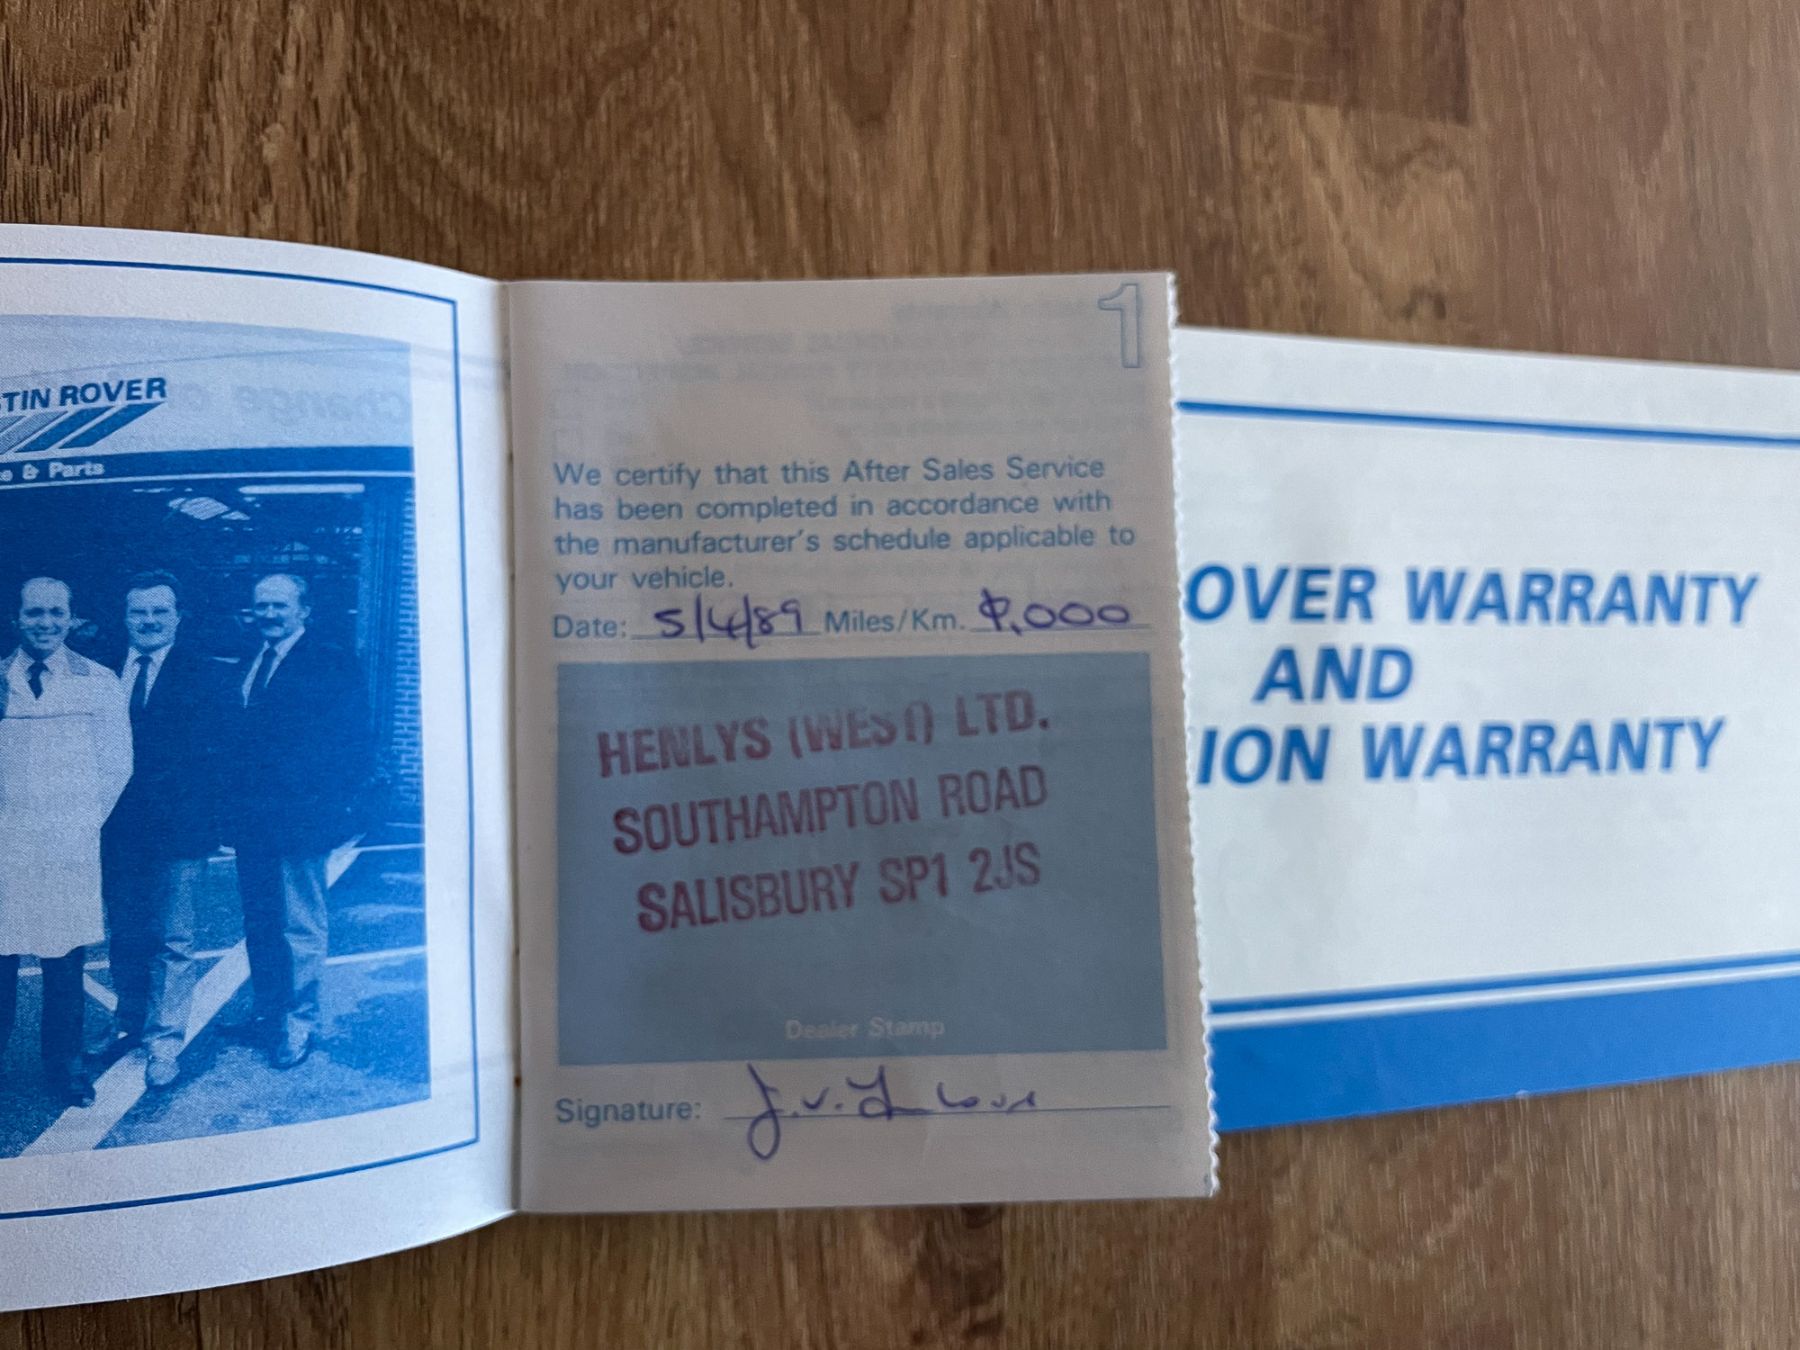 TIN ROVER
e & Parts
1
We certify that this After Sales Service
has been completed in accordance with
the manufacturer's schedule applicable to
your vehicle.
Date: 5/4/89 Miles/Km. ,000
HENLYS (WEST) LTD.
SOUTHAMPTON ROAD
SALISBURY SP1 2JS
Dealer Stamp
Signature: J.V.
OVER WARRANTY
AND
ION WARRANTY